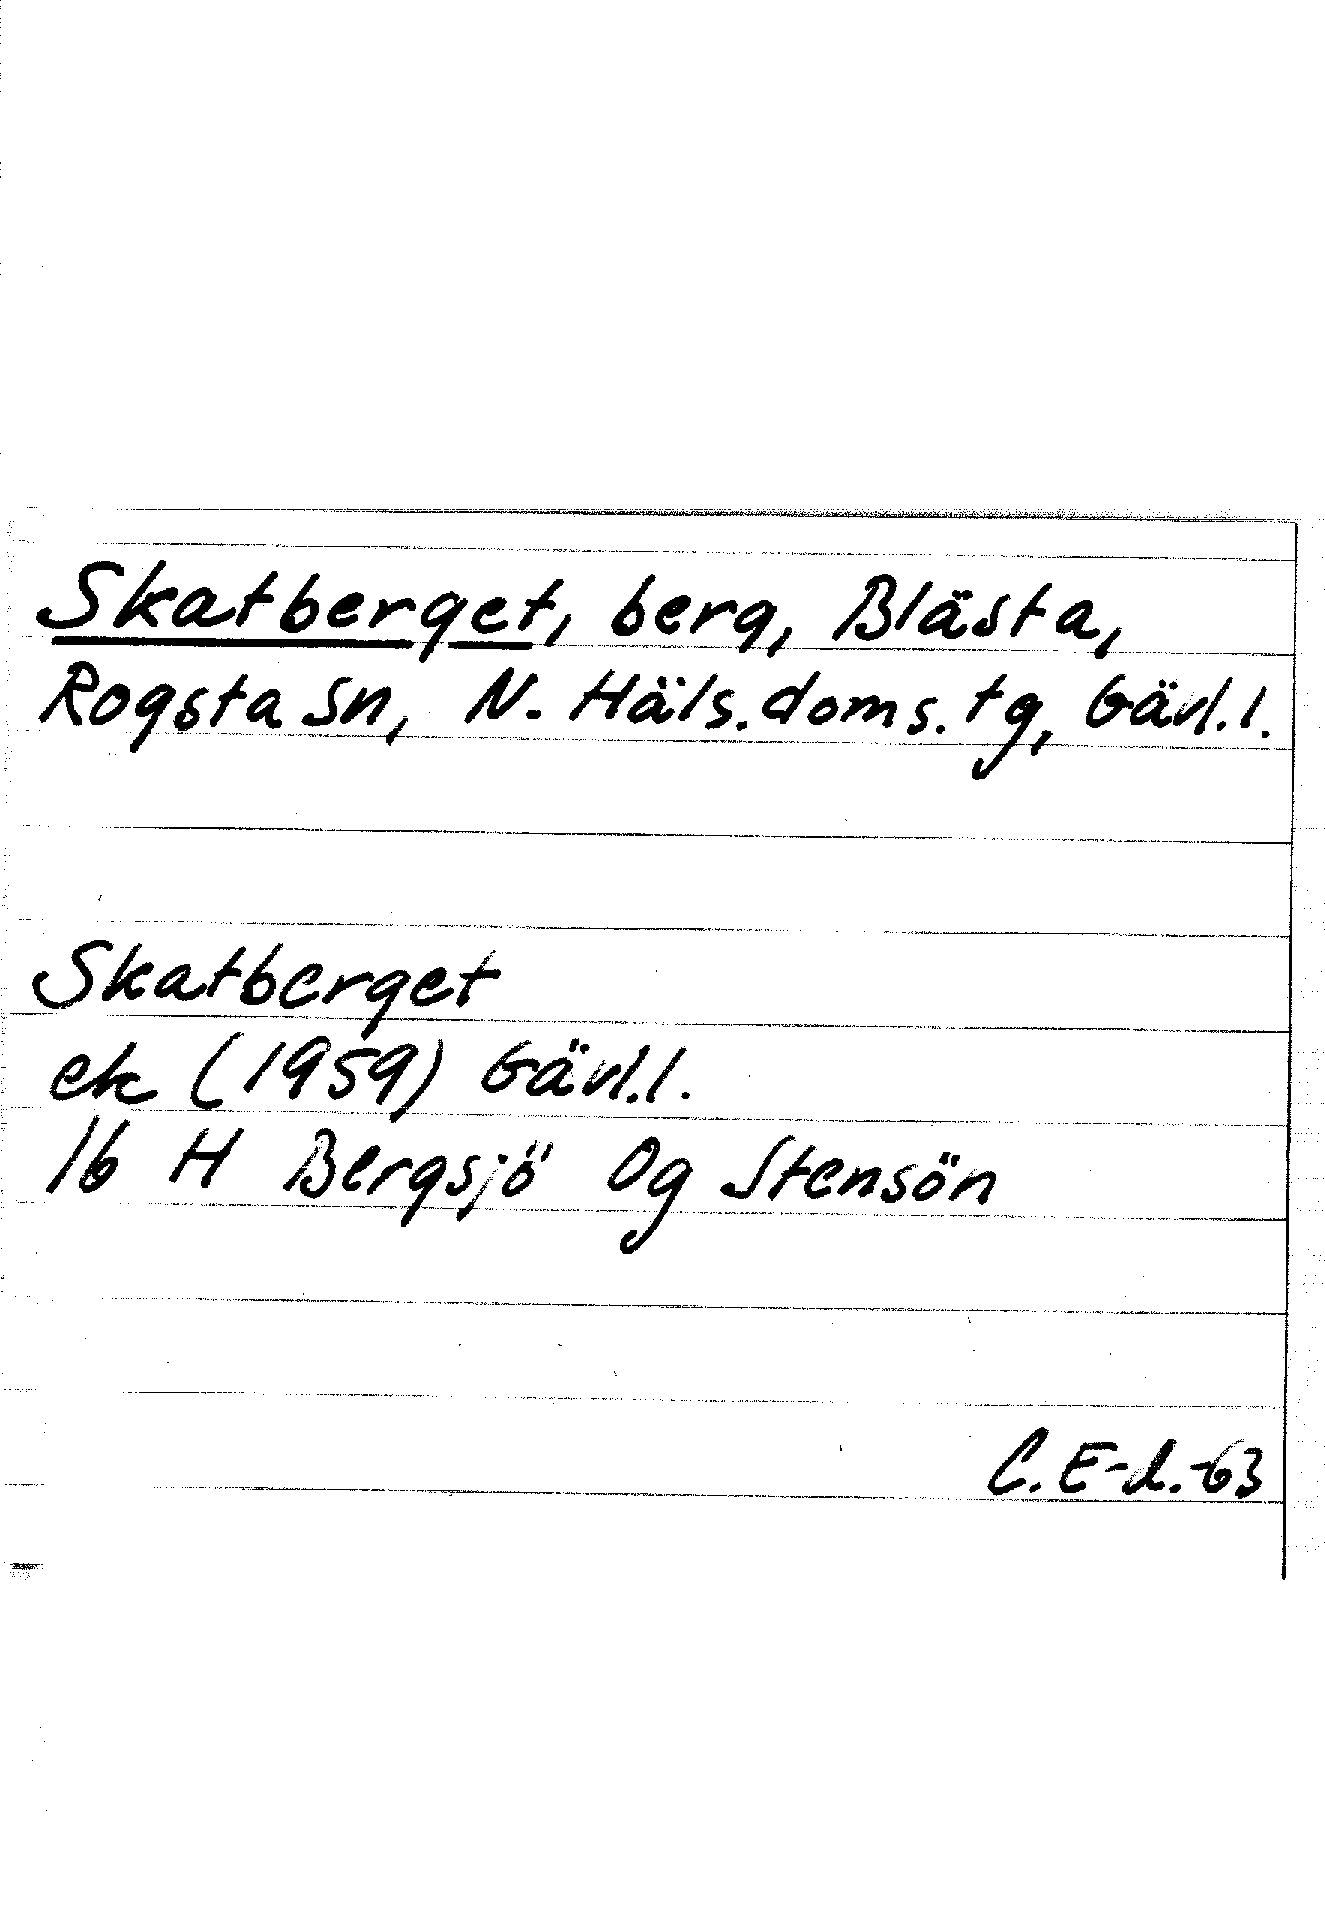 Skatberget, berg, Blästa,
Rogsta sn, N. Häls. doms. tg, Gävl. l.
Skatberget
ek (1959) Gävl. l.
16 H Bergsjö Og Stensön
C. E-d. -63